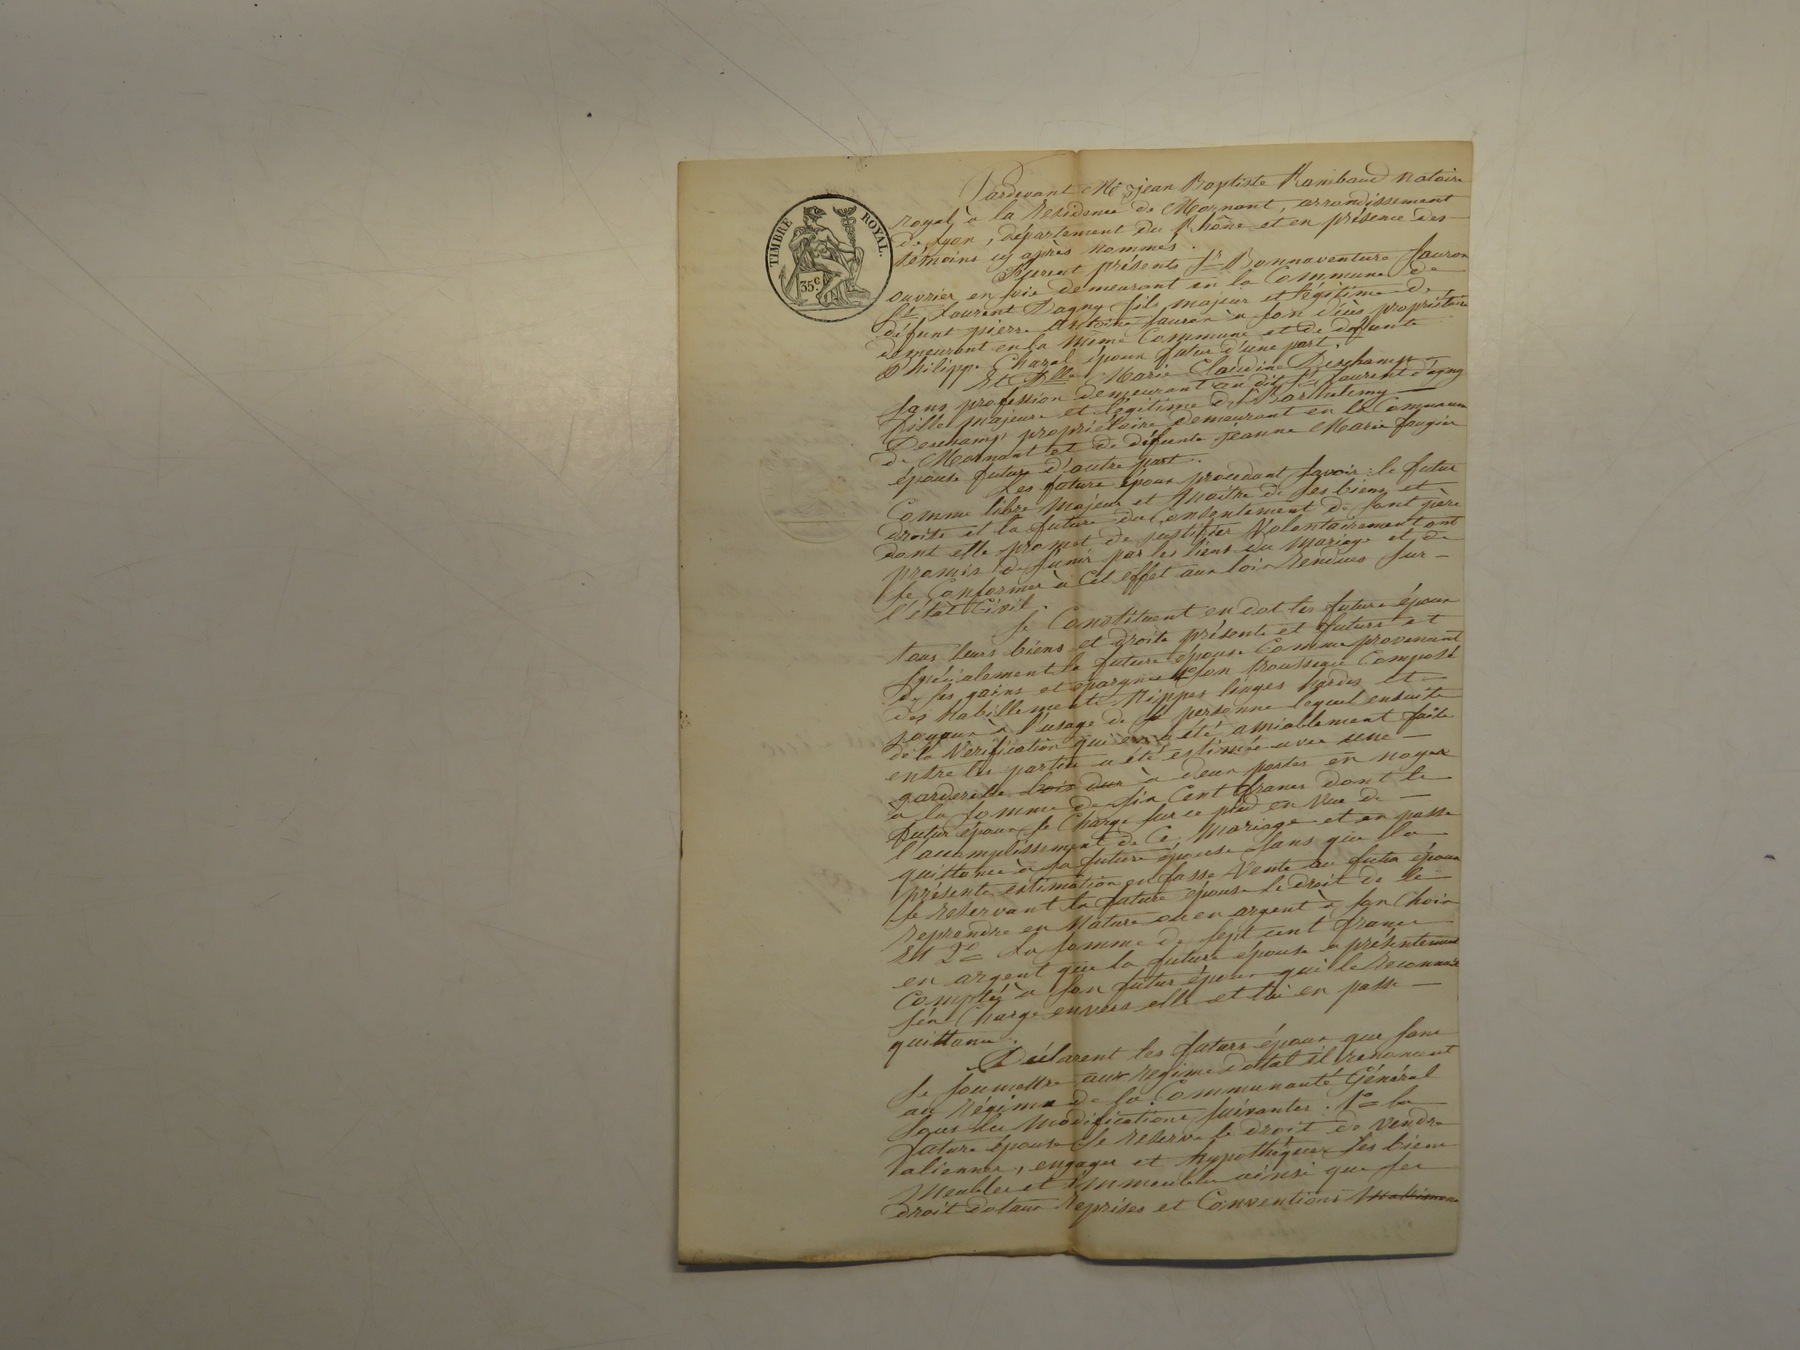 TIMBRE ROYAL.
35 c.
Pardevant Me jean Baptiste Rambaud notaire
royal à la résidence de Mornant, arrondissement
de Lyon, département du Rhône et en présence des
témoins cy après nommés.
furent présents Sr Bonnaventure fauron
ouvrier en soie demeurant en la Commune de
St Laurent Dagny fils majeur et légitime de
défunt pierre Antoine fauron à son décès propriétaire
demeurant en la même Commune et de défunte
Philippe Chazal époux futur d'une part.
Et Dlle Marie Claudine Deschamps
sans profession demeurant au dit St Laurent d'agny
fille majeure et légitime de Sr Barthelemy
Deschamps propriétaire demeurant en la Commune
de Mornant et de défunte jeanne Marie faugier
épouse future d'autre part.
Les futurs époux procédant savoir : le futur
Comme libre Majeur et Maître de ses biens et
droits et la future du Consentement de sont père
dont elle promet de justifier Volontairement ont
promis de s'unir par les liens du mariage et de
se Conformer à Cet effet aux lois rendues sur
l'état Civil.
Se Constituent en dot les futurs époux
tous leurs biens et droits présents et futurs et
spécialement la future épouse Comme provenant
de ses gains et épargnes son trousseau Composé
des habillements Nippes linges hardes et
joyaux à l'usage de sa personne lequel ensuite
de la Vérification qui en a été amiablement faite
entre les parties a été estimée avec une
garderobe bois dur à deux portes en noyer
à la somme de six Cent francs dont le
futur époux se Charge sur ce pied en Vue de
l'accomplissement de Ce Mariage et en passe
quittance à sa future épouse sans que la
présente estimation en fasse Vente au futur époux
se réservant la future épouse le droit de le
reprendre en Nature ou en argent à son Choix
Et 2° La somme de sept cent francs
en argent que la future épouse a présentement
Compté à son futur époux qui le reconnait
s'en Charge envers elle et lui en passe
quittance.
Déclarent les futurs époux que sans
se soumettre aux régime dotal il renoncent
au Régime de la Communauté Général
sous les modifications suivantes. 1° la
future épouse se réserve le droit de vendre
alienner, engager et hypothéquer ses biens
Meubles et immeubles ainsi que ses
droit dotaux reprises et Conventions